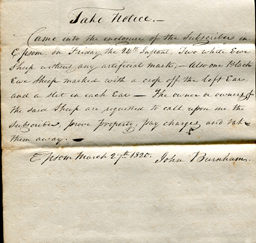 Take Notice.—
Came into the enclosure of the Subscriber in
Epsom on Friday the 24th Instant, Two white Ewe
Sheep without any artificial mark,— Also one black
Ewe Sheep marked with a crop off the left Ear
and a slit in each Ear — The owner or owners of
the said Sheep are requested to call upon me the
Subscriber, prove property, pay charges, and take
them away.—
Epsom March 27th 1820. John Burnham.